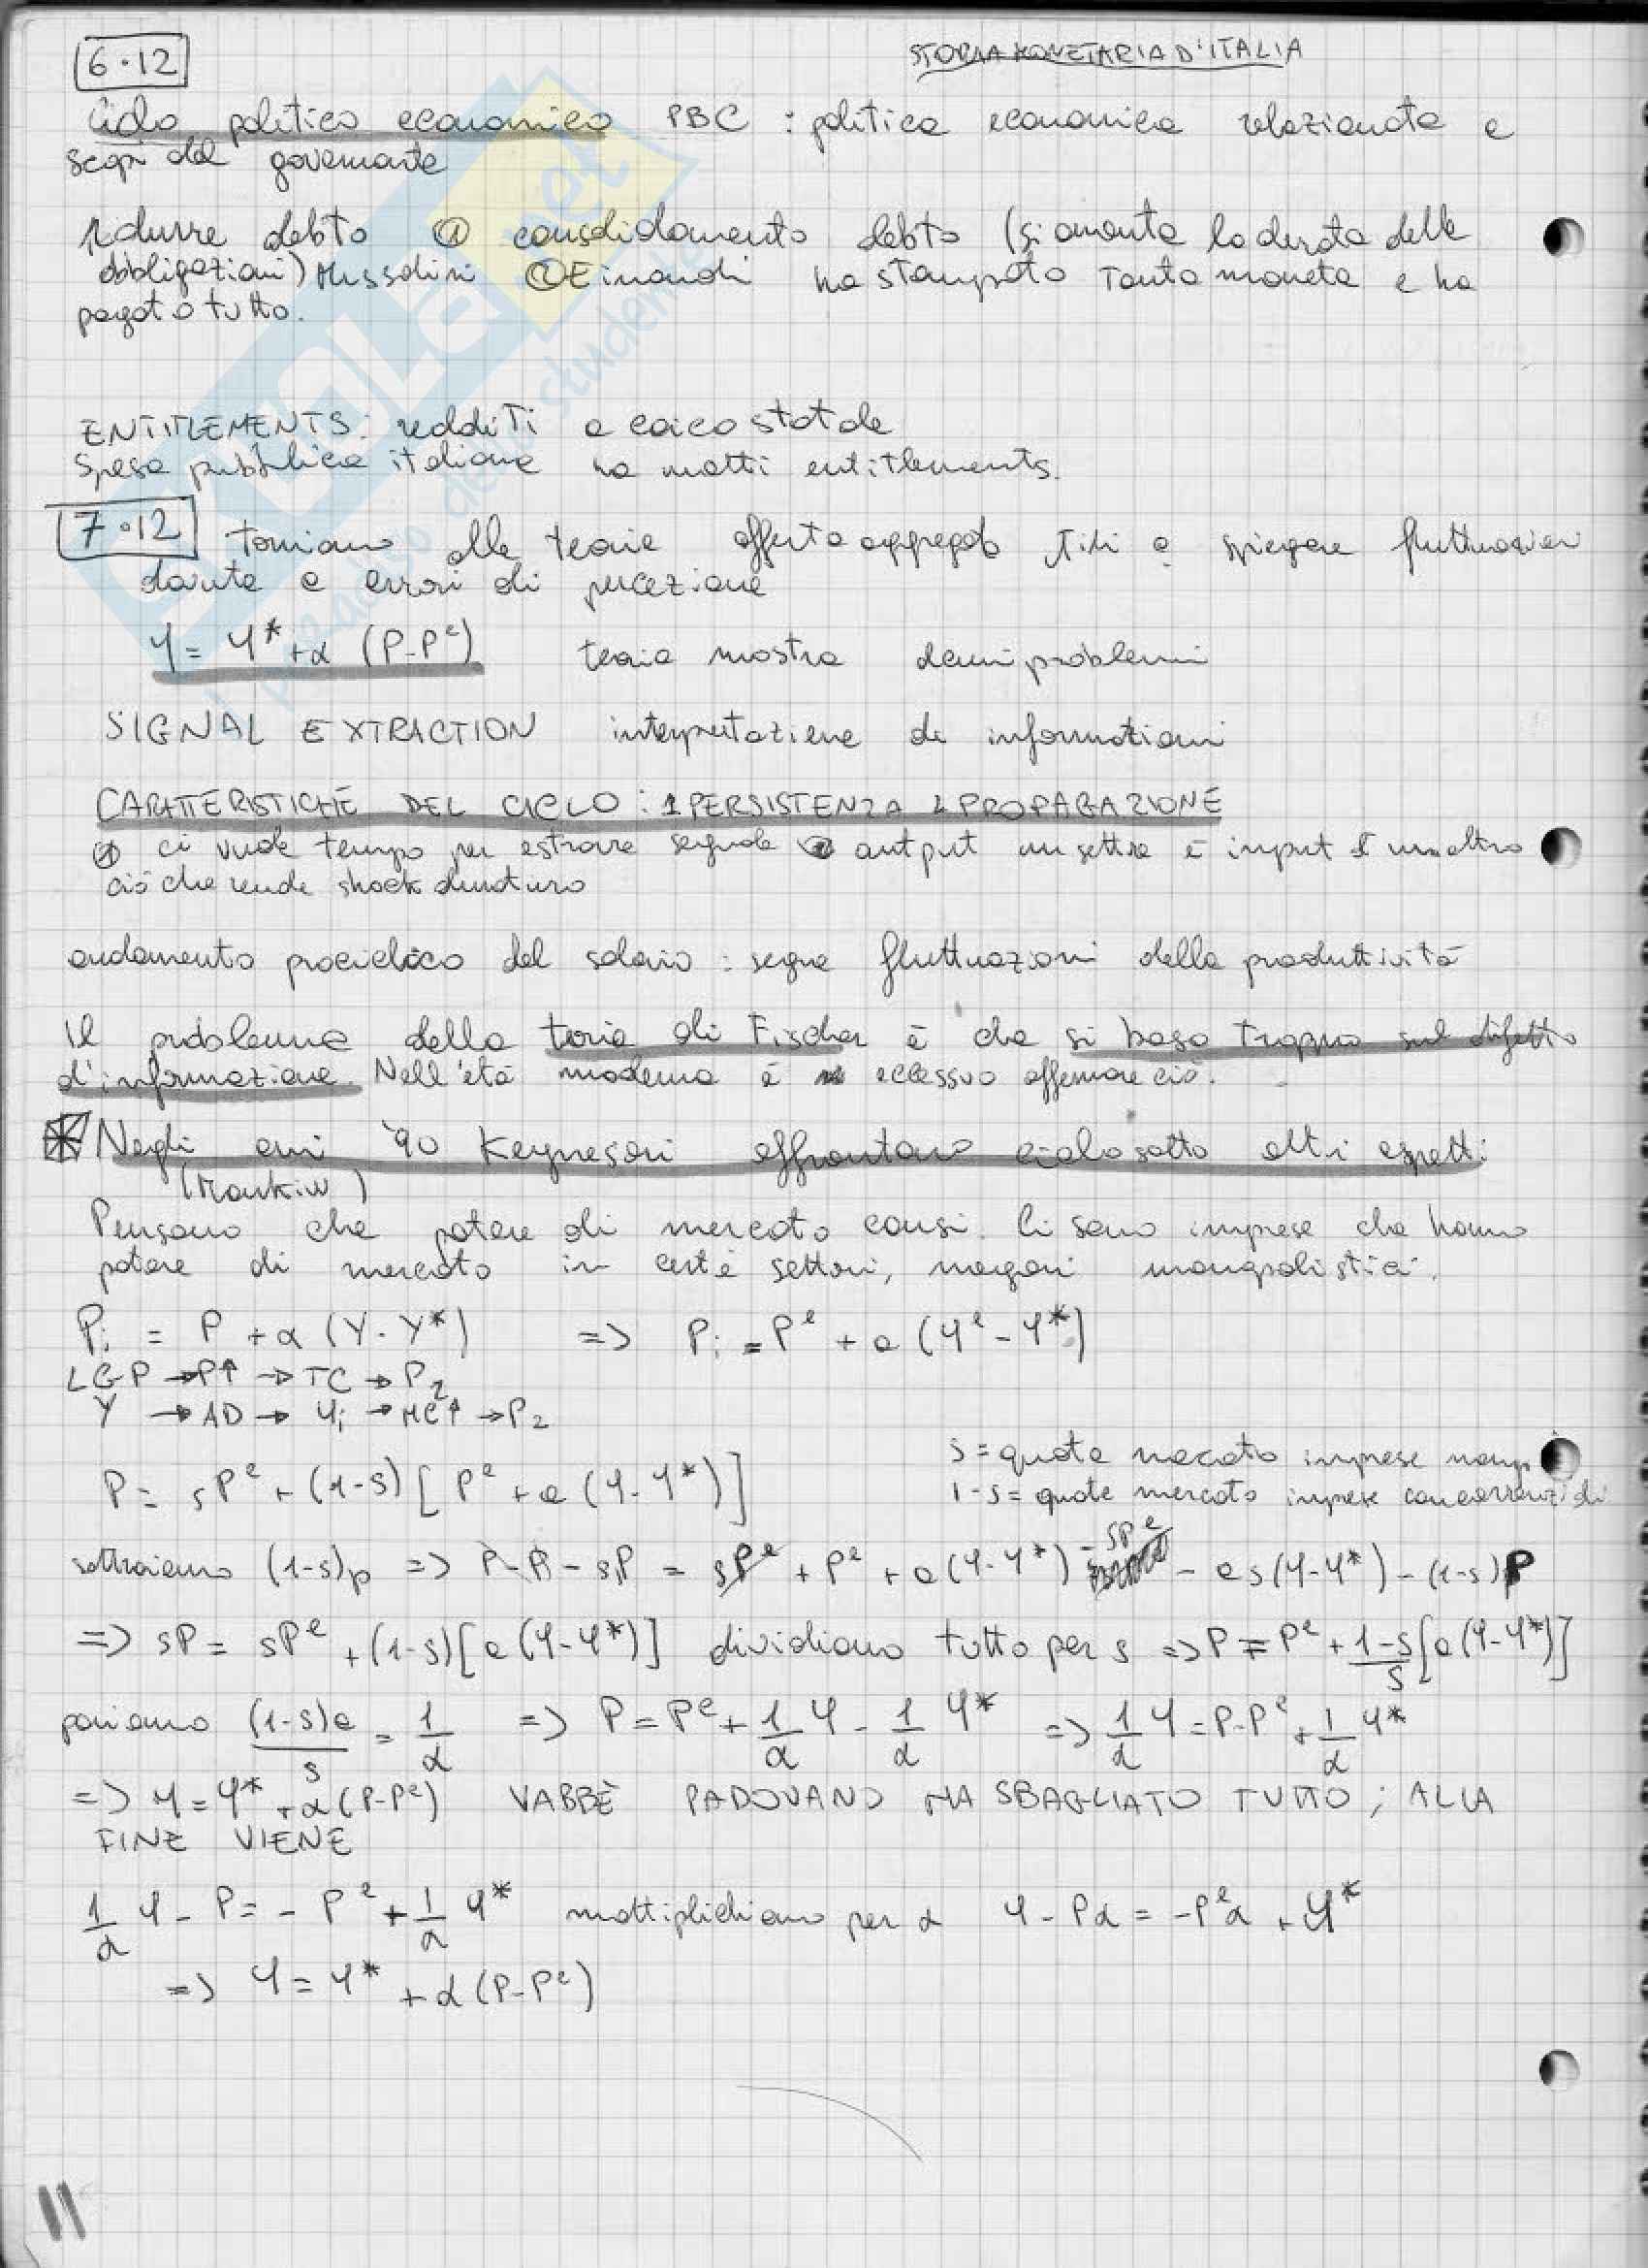 6·12
STORIA MONETARIA D'ITALIA
Ciclo politico economico PBC : politica economica relazionata a
scopi del governante
ridurre debto ① consolidamento debto (si aumenta la durata delle
obbligazioni) Mussolini ② Einaudi ha stampato tanta moneta e ha
pagato tutto.
ENTITLEMENTS: redditi a carico statale
Spesa pubblica italiana ha molti entitlements.
7·12 torniamo alle teorie offerta aggregata utili a spiegare fluttuazioni
dovute a errori di percezione
Y = Y* + α (P-Pᵉ) teoria mostra alcuni problemi
SIGNAL EXTRACTION interpretazione di informazioni
CARATTERISTICHE DEL CICLO: 1 PERSISTENZA 2 PROPAGAZIONE
① ci vuole tempo per estrarre segnale ② output un settore è input d un altro
ciò che rende shock duraturo
andamento prociclico del salario : segue fluttuazioni della produttività
Il problema della teoria di Fischer è che si basa troppo sul difetto
d'informazione. Nell'età moderna è eccessivo affermare ciò.
Negli anni '90 Keynesiani affrontano ciclo sotto altri aspetti:
(Mankiw)
Pensano che potere di mercato causi. Ci sono imprese che hanno
potere di mercato in certi settori, magari monopolistici.
Pi = P + α (Y - Y*) => Pi = Pᵉ + a (Yᵉ - Y*)
LGP → P↑ → TC → P2
Y → AD → Yi → MC↑ → P2
P = sPᵉ + (1-s) [Pᵉ + a (Y - Y*)]
s = quota mercato imprese monop
1-s = quota mercato imprese concorrenziali
sottraiamo (1-s)p => P - P - sP = sPᵉ + Pᵉ + a(Y-Y*) - sPᵉ - as(Y-Y*) - (1-s)P
=> sP = sPᵉ + (1-s)[a(Y-Y*)] dividiamo tutto per s => P = Pᵉ + 1-s/s [a(Y-Y*)]
poniamo (1-s)a/s = 1/α => P = Pᵉ + 1/α Y - 1/α Y* => 1/α Y = P-Pᵉ + 1/α Y*
=> Y = Y* + α(P-Pᵉ) VABBÈ PADOVANO HA SBAGLIATO TUTTO; ALLA
FINE VIENE
1/α Y - P = - Pᵉ + 1/α Y* moltiplichiamo per α Y - Pα = -Pᵉα + Y*
=> Y = Y* + α (P-Pᵉ)
11